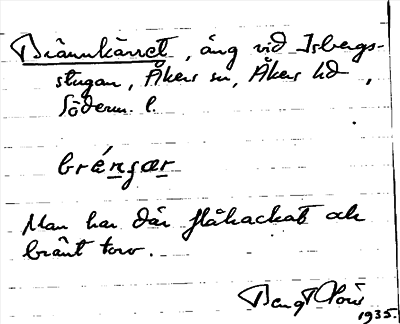 Brännkärret, äng vid Isbergs-
stugan, Åkers sn, Åkers hd,
Söderm. l.
bränçær
Man har där flåhackat och
bränt torv.
Bengt
1935.